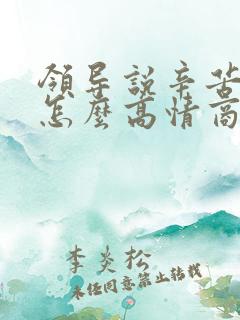 領导説辛苦
怎麽高情商
李炎松
未经同意禁止转载